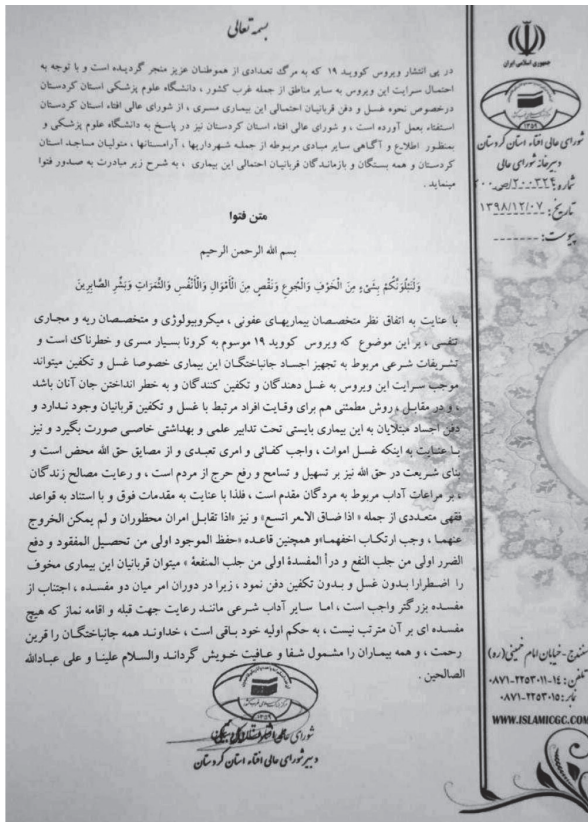 بسمه تعالی
جمهوری اسلامی ایران
شورای عالی افتاء استان کردستان
دبیرخانه شورای عالی
شماره: ۲۰۰۳۲۴/ص۲۰۰
تاریخ: ۱۳۹۸/۱۲/۰۷
پیوست:
در پی انتشار ویروس کووید ۱۹ که به مرگ تعدادی از هموطنان عزیز منجر گردیده است و با توجه به
احتمال سرایت این ویروس به سایر مناطق از جمله غرب کشور ، دانشگاه علوم پزشکی استان کردستان
درخصوص نحوه غسل و دفن قربانیان احتمالی این بیماری مسری ، از شورای عالی افتاء استان کردستان
استفتاء بعمل آورده است ، و شورای عالی افتاء استان کردستان نیز در پاسخ به دانشگاه علوم پزشکی و
بمنظور اطلاع و آگاهی سایر مبادی مربوطه از جمله شهرداریها ، آرامستانها ، متولیان مساجد استان
کردستان و همه بستگان و بازماندگان قربانیان احتمالی این بیماری ، به شرح زیر مبادرت به صدور فتوا
مینماید .
متن فتوا
بسم الله الرحمن الرحیم
وَلَنَبْلُوَنَّكُمْ بِشَيْءٍ مِنَ الْخَوْفِ وَالْجُوعِ وَنَقْصٍ مِنَ الْأَمْوَالِ وَالْأَنْفُسِ وَالثَّمَرَاتِ وَبَشِّرِ الصَّابِرِينَ
با عنایت به اتفاق نظر متخصصان بیماریهای عفونی ، میکروبیولوژی و متخصصان ریه و مجاری
تنفسی ، بر این موضوع که ویروس کووید ۱۹ موسوم به کرونا بسیار مسری و خطرناک است و
تشریفات شرعی مربوط به تجهیز اجساد جانباختگان این بیماری خصوصا غسل و تکفین میتواند
موجب سرایت این ویروس به غسل دهندگان و تکفین کنندگان و به خطر انداختن جان آنان باشد
، و در مقابل ، روش مطمئنی هم برای وقایت افراد مرتبط با غسل و تکفین قربانیان وجود ندارد و
دفن اجساد مبتلایان به این بیماری بایستی تحت تدابیر علمی و بهداشتی خاصی صورت بگیرد و نیز
با عنایت به اینکه غسل اموات ، واجب کفائی و امری تعبدی و از مصایق حق الله محض است و
بنای شریعت در حق الله نیز بر تسهیل و تسامح و رفع حرج از مردم است ، و رعایت مصالح زندگان
، بر مراعات آداب مربوط به مردگان مقدم است ، فلذا با عنایت به مقدمات فوق و با استناد به قواعد
فقهی متعددی از جمله « اذا ضاق الامر اتسع» و نیز «اذا تقابل امران محظوران و لم یمکن الخروج
عنهما ، وجب ارتکاب اخفهما»و همچنین قاعده «حفظ الموجود اولی من تحصیل المفقود و دفع
الضرر اولی من جلب النفع و درأ المفسدة اولی من جلب المنفعة » میتوان قربانیان این بیماری مخوف
را اضطرارا بدون غسل و بدون تکفین دفن نمود ، زیرا در دوران امر میان دو مفسده ، اجتناب از
مفسده بزرگتر واجب است ، اما سایر آداب شرعی مانند رعایت جهت قبله و اقامه نماز که هیچ
مفسده ای بر آن مترتب نیست ، به حکم اولیه خود باقی است ، خداوند همه جانباختگان را قرین
رحمت ، و همه بیماران را مشمول شفا و عافیت خویش گرداند والسلام علینا و علی عبادالله
الصالحین .
شورای عالی
دبیر شورای عالی افتاء استان کردستان
سنندج - خیابان امام خمینی (ره)
تلفن: ۱۴-۲۲۵۳۰۱۱-۰۸۷۱
نمابر: ۲۲۵۳۰۱۵-۰۸۷۱
WWW.ISLAMICGC.COM